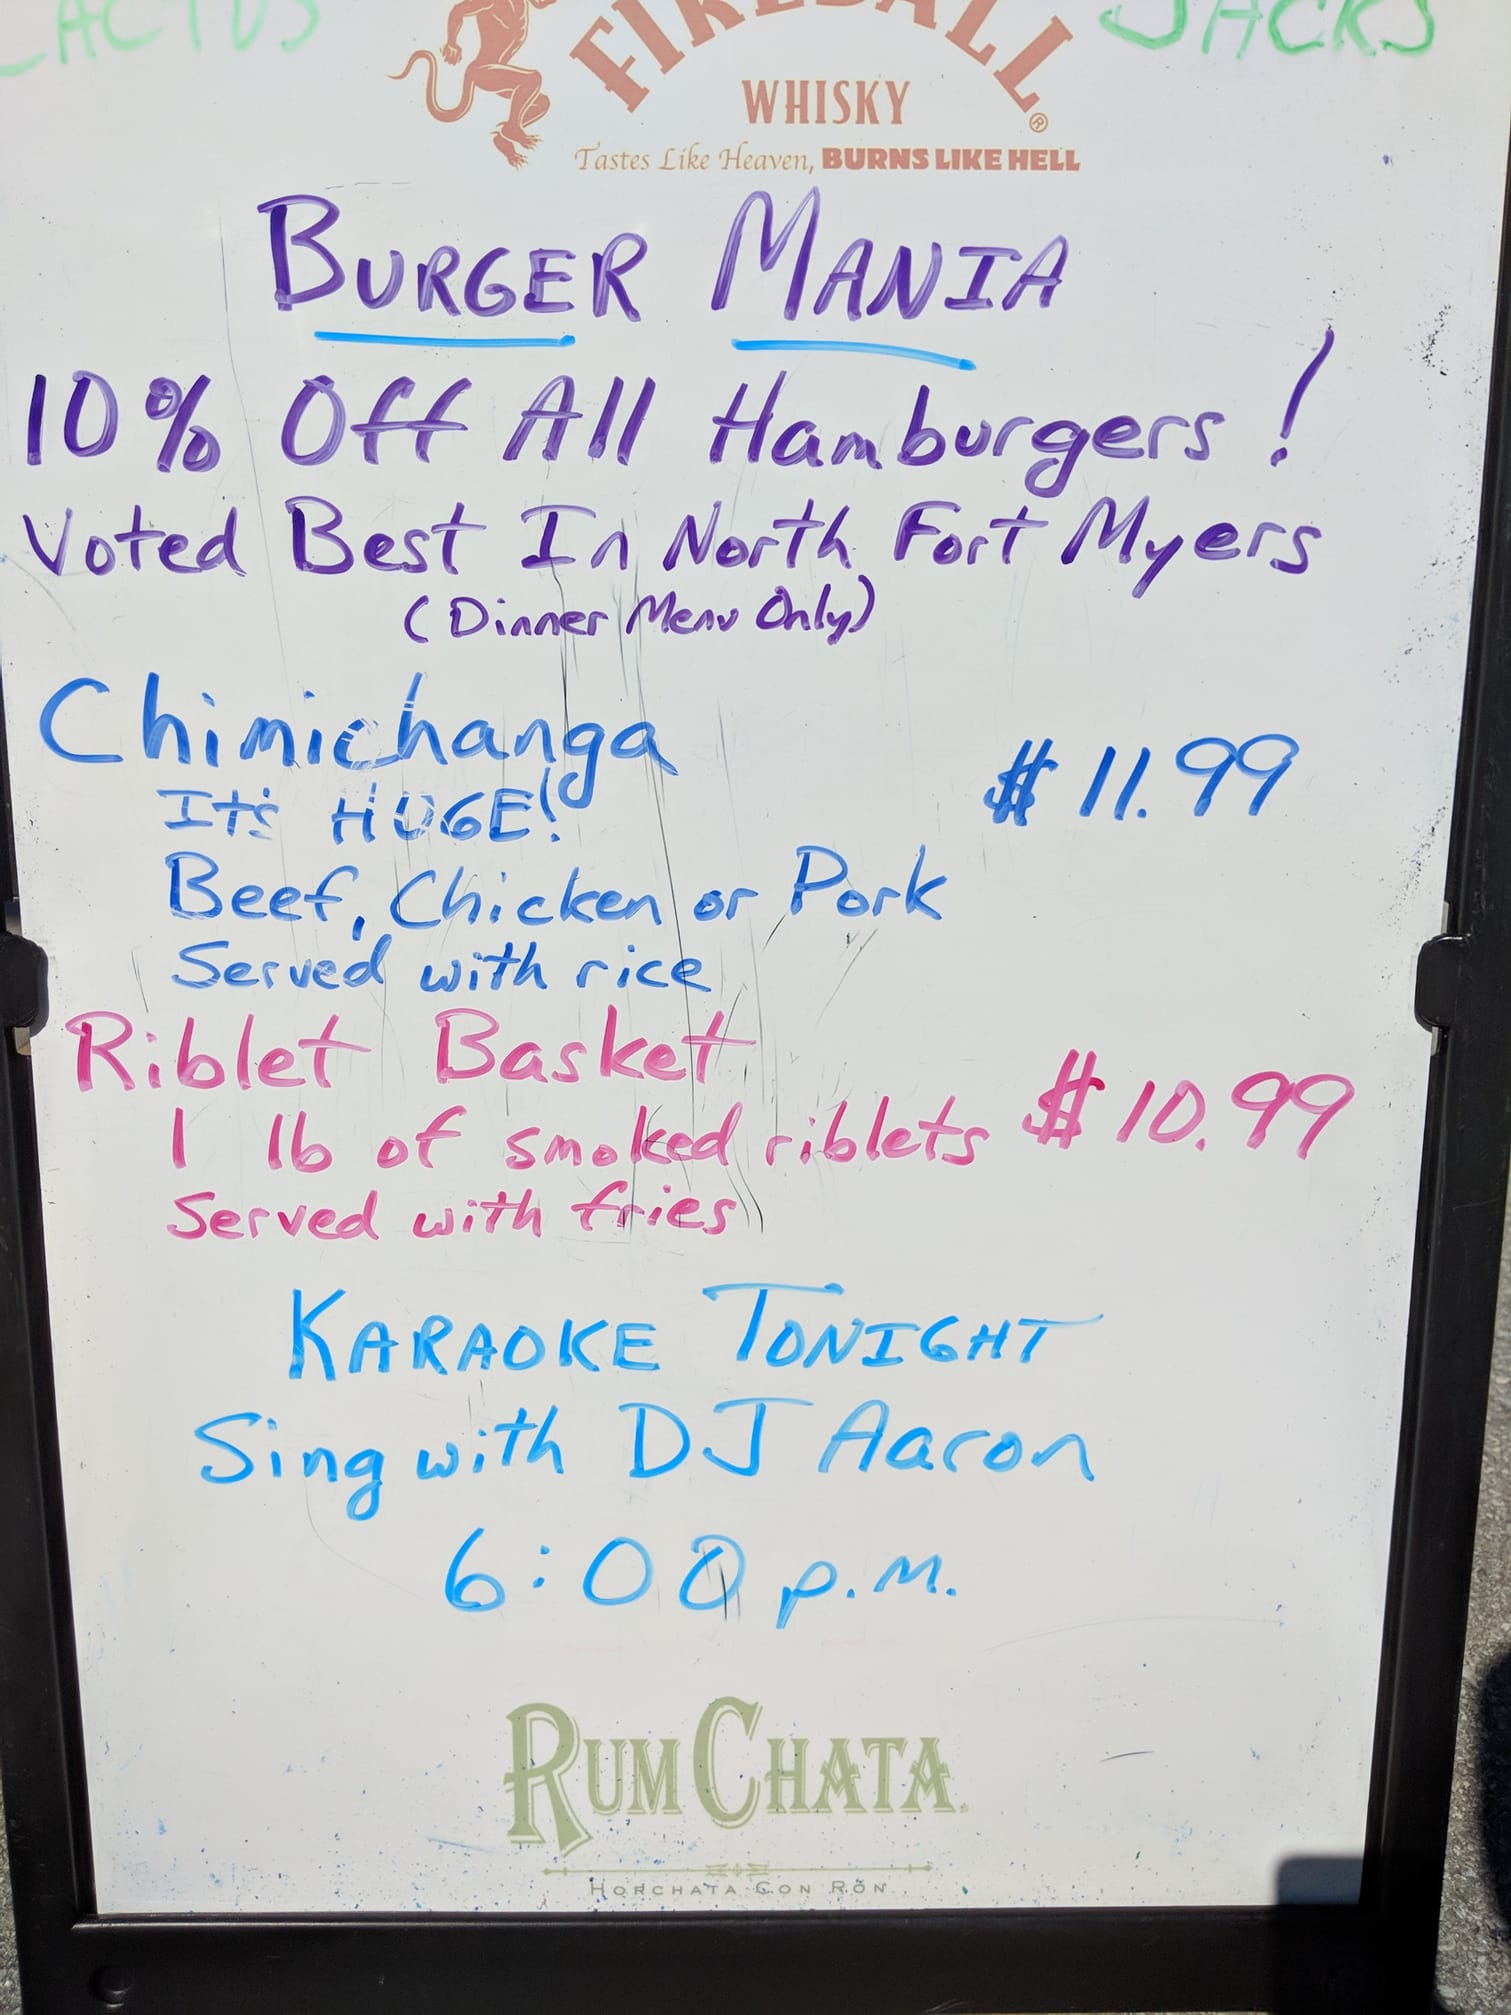 CACTUS JACKS
FIREBALL
WHISKY
Tastes Like Heaven, BURNS LIKE HELL
BURGER MANIA
10% Off All Hamburgers!
Voted Best In North Fort Myers
(Dinner Menu Only)
Chimichanga
$11.99
It's HUGE!
Beef, Chicken or Pork
Served with rice
Riblet Basket
$10.99
1 lb of smoked riblets
Served with fries
KARAOKE TONIGHT
Sing with DJ Aaron
6:00 p.m.
RUMCHATA
HORCHATA CON RON